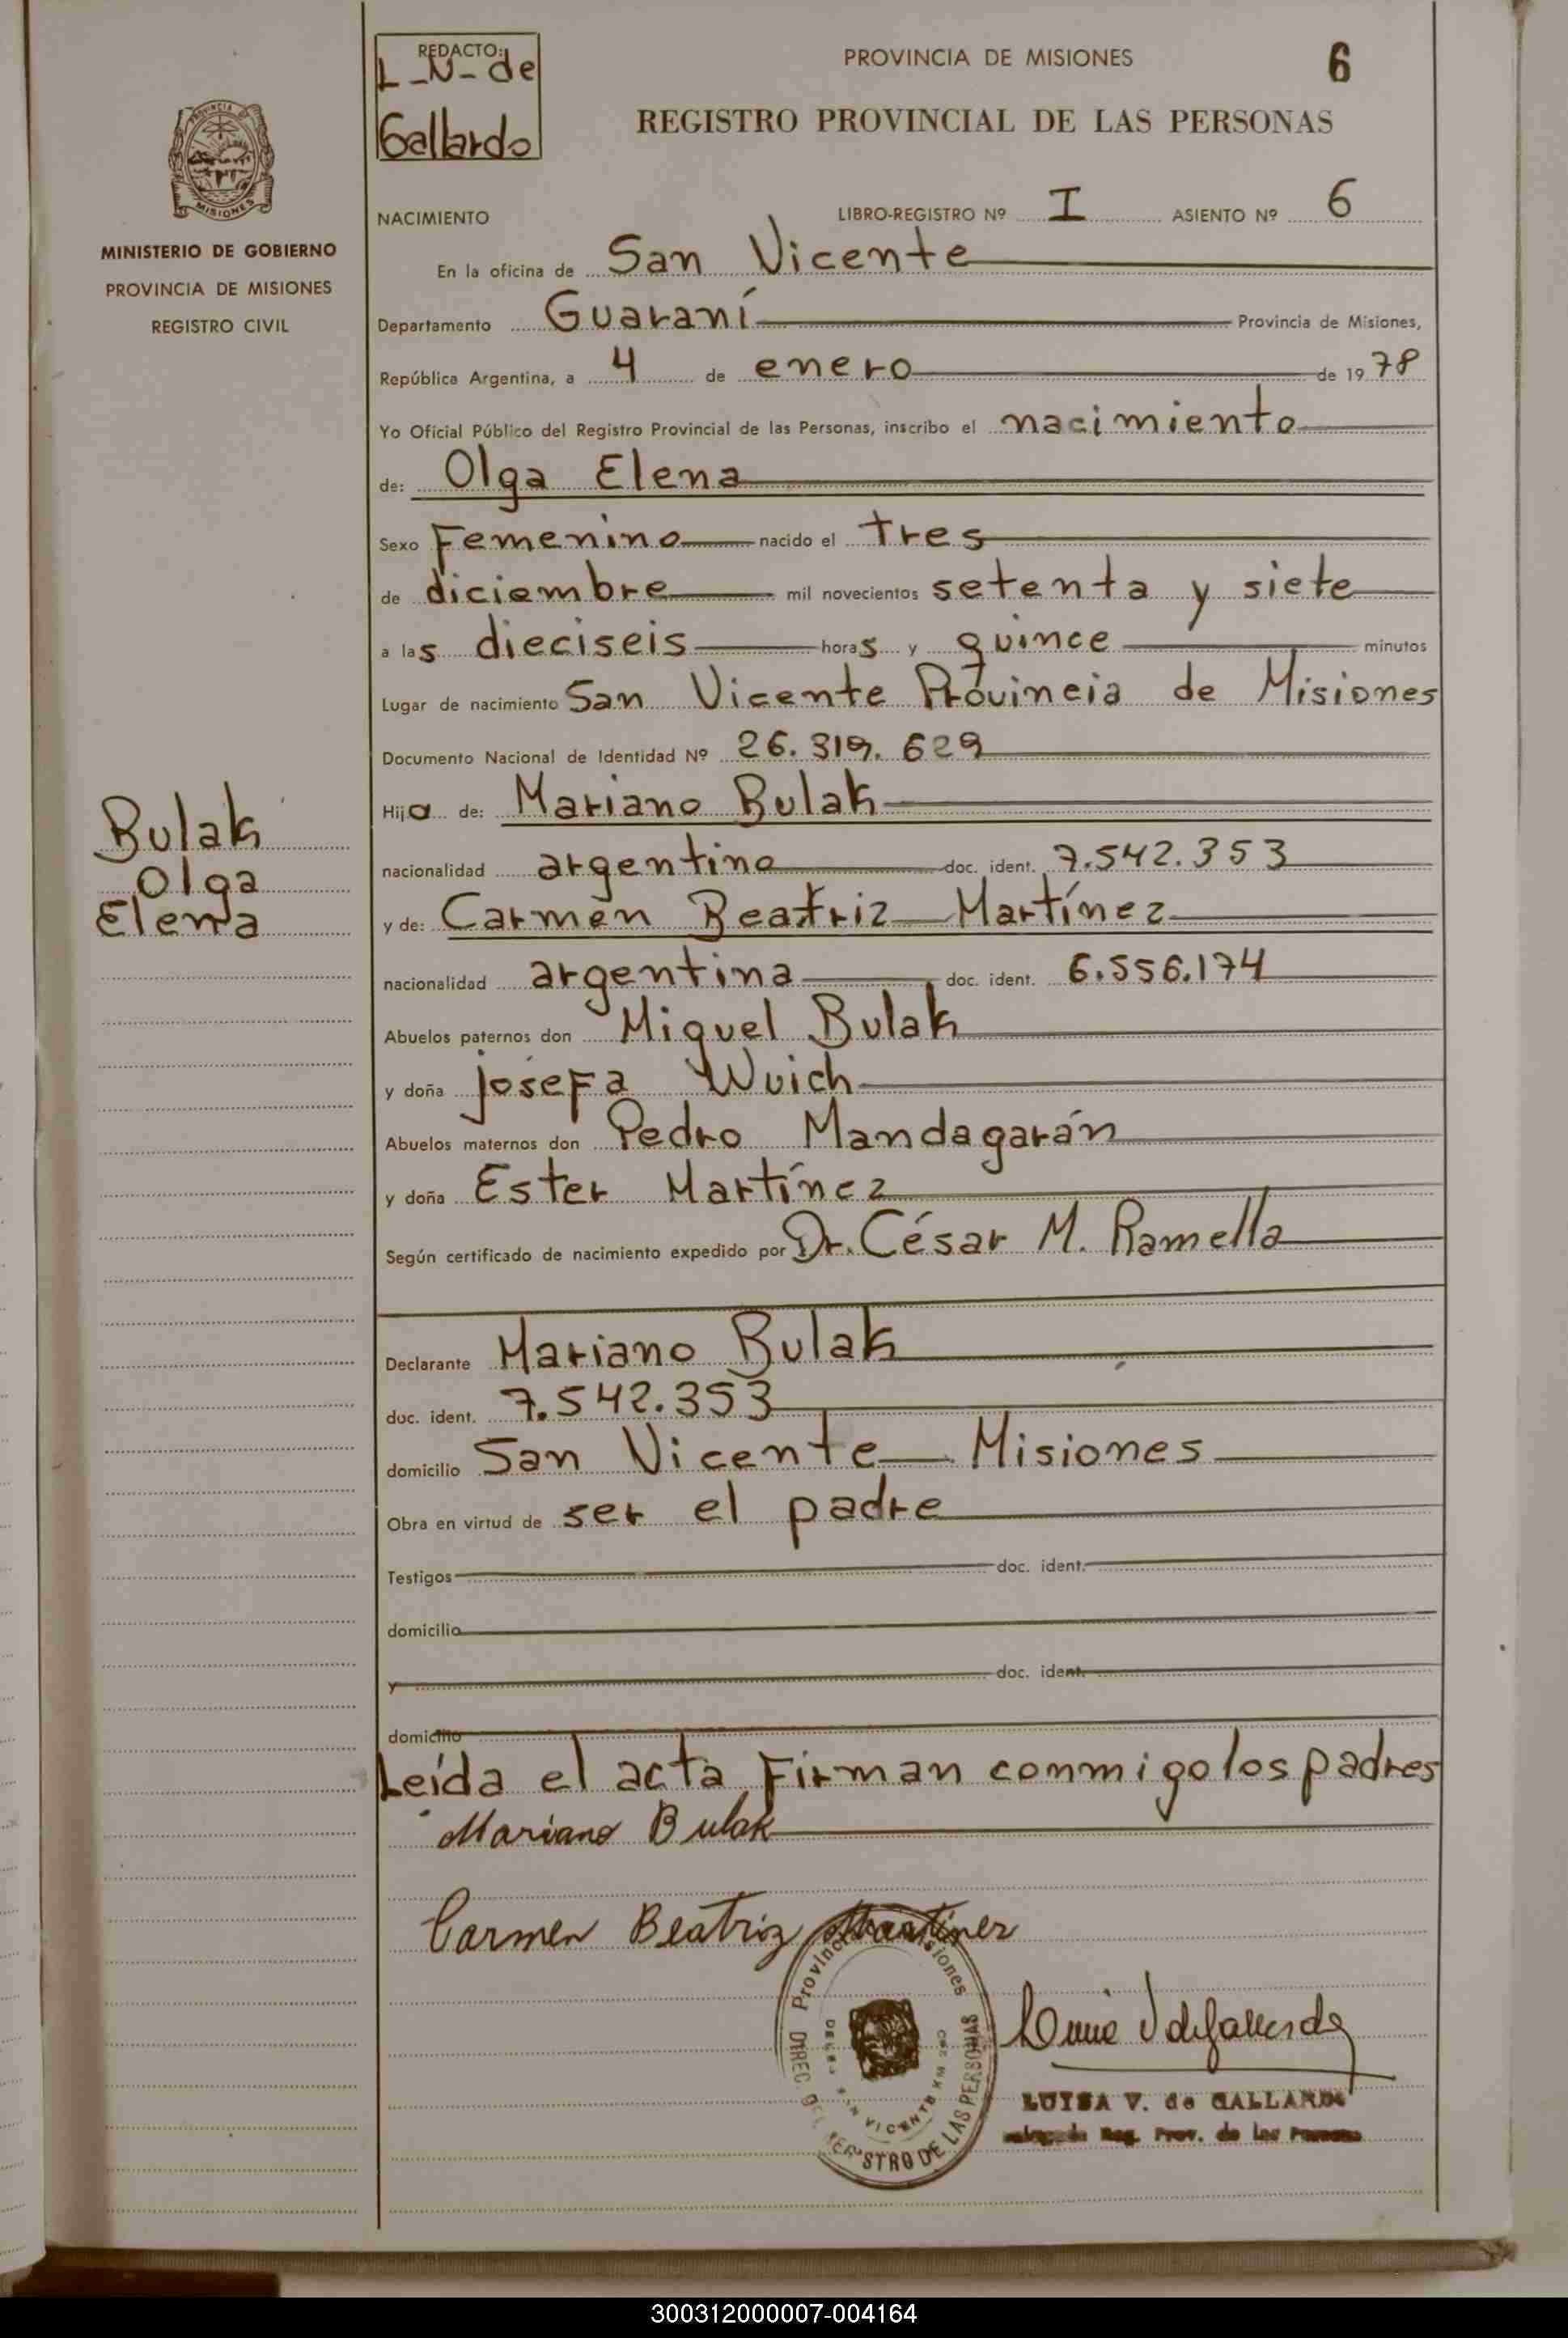 REDACTO:
L-N-de
Gallardo
PROVINCIA DE MISIONES
6
REGISTRO PROVINCIAL DE LAS PERSONAS
MISIONES
MINISTERIO DE GOBIERNO
PROVINCIA DE MISIONES
REGISTRO CIVIL
NACIMIENTO LIBRO-REGISTRO Nº I ASIENTO Nº 6
En la oficina de San Vicente
Departamento Guaraní Provincia de Misiones,
República Argentina, a 4 de enero de 1978
Yo Oficial Público del Registro Provincial de las Personas, inscribo el nacimiento
de: Olga Elena
Sexo Femenino nacido el tres
de diciembre mil novecientos setenta y siete
a las dieciseis horas y quince minutos
Lugar de nacimiento San Vicente Provincia de Misiones
Documento Nacional de Identidad Nº 26.319.629
Bulak
Olga
Elena
Hija de: Mariano Bulak
nacionalidad argentino doc. ident. 7.542.353
y de: Carmen Beatriz Martínez
nacionalidad argentina doc. ident. 6.556.174
Abuelos paternos don Miguel Bulak
y doña Josefa Wuich
Abuelos maternos don Pedro Mandagarán
y doña Ester Martínez
Según certificado de nacimiento expedido por Dr. César M. Ramella
Declarante Mariano Bulak
doc. ident. 7.542.353
domicilio San Vicente Misiones
Obra en virtud de ser el padre
Testigos doc. ident.
domicilio
y doc. ident.
domicilio
Leída el acta Firman conmigo los padres
Mariano Bulak
Carmen Beatriz Martinez
Provincia Misiones
DIREC. DEL REGISTRO DE LAS PERSONAS
SAN VICENTE
LUISA V. de GALLARDO
Reg. Prov. de las Personas
300312000007-004164